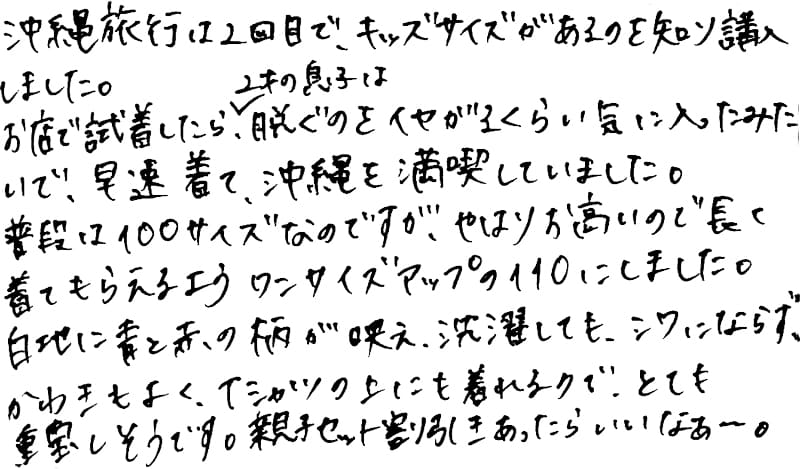 沖縄旅行は2回目で、キッズサイズがあるのを知り講入
しました。
2才の息子は
お店で試着したら、脱ぐのをイヤがるくらい気に入ったみた
いで、早速着て、沖縄を満喫していました。
普段は100サイズなのですが、やはりお高いので長く
着てもらえるようワンサイズアップの110にしました。
白地に青と赤の柄が映え、洗濯しても、シワにならず、
かわきもよく、Tシャツの上にも着れるので、とても
重宝しそうです。親子セット割引きあったらいいなぁ〜。